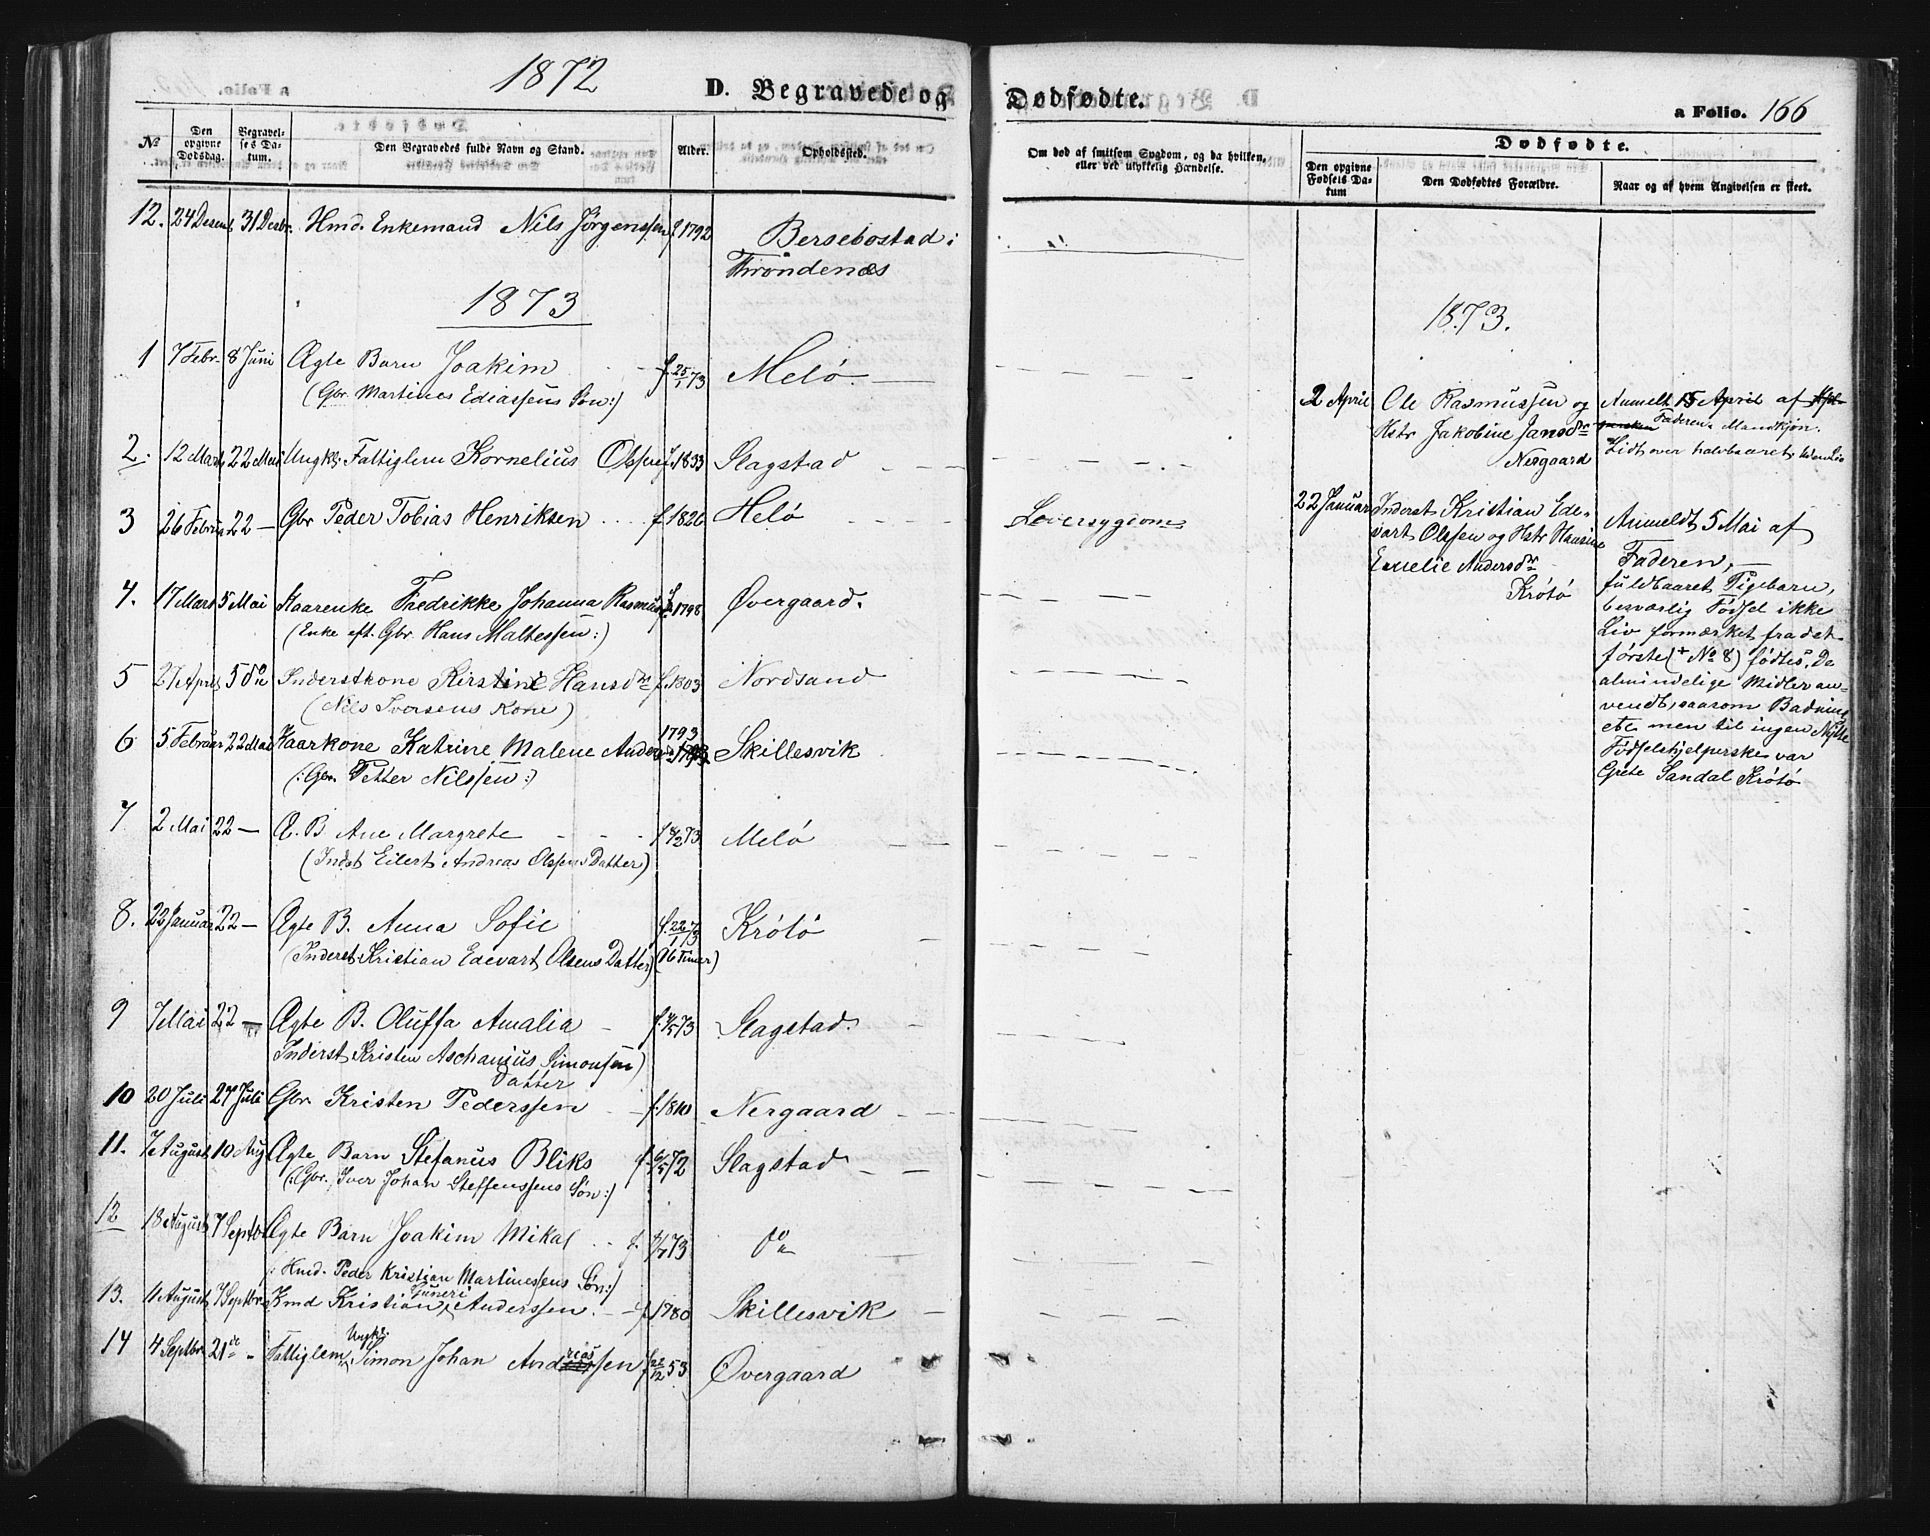 1872
D. Begravede og Dødfødte.
a Folio. 166
№
Den opgivne Dødsdag.
Begravelses Datum.
Den Begravedes fulde Navn og Stand.
Alder.
Opholdssted.
Om død af smitsom Sygdom, og da hvilken, eller ved ulykkelig Hændelse.
Dødfødte.
Den opgivne Fødsels Datum
Den Dødfødtes Forældre.
Naar og af hvem Angivelsen er skeet.
12. 24 Desemb 31 Desbr. Hmd. Enkemand Nils Jørgenssen f. 1792 Bersebostad i
Throndenæs
1873
1 7 Febr. 8 Juni Ægte Barn Joakim f. 25/1 73 Melö.
(Gbr. Martines Ediassens Søn:)
2. 12 Marts 22 Mai Ungk. Fattiglem Kornelius Olssen f. 1833 Slagstad
3 26 Februar 22 — Gbr Peder Tobias Henriksen f. 1820 Melö Leversygdom
4. 17 Mart 5 Mai Kaarenke Fredrikke Johanna Rasmusd f. 1798 Øvergaard.
(Enke eft. Gbr. Hans Maltessen:)
5 27 April 5 do Inderstkone Kirstine Hansdr f. 1803 Nordsand
(Nils Iversens Kone)
6 5 Februar 22 Mai Kaarkone Katrine Malene Anders 1793 Skillesvik
(: Gbr. Petter Nilssen:)
7 2 Mai 22 — Æ. B Ane Margrete f 8/2 73 Melö
(Indst Eilert Andreas Olssens Datter)
8. 22 Januar 22 — Ægte B. Anna Sofie f. 22/1 73 Krötö
(Inderst Kristian Edevart Olsens Datter) (16 Timer)
9 7 Mai 22 — Ægte B. Oluffa Amalia f. 4/5 73 Slagstad.
Inderst Kristen Aschanius Simonsen)
Datter
10 20 Juli 27 Juli Gbr. Kristen Pederssen f. 1810 Nergaard
11. 7 August 10 Aug Ægte Barn Stefanus Bliks f. 6/5 72 Slagstad
(: Gbr. Iver Johan Steffenssens Søn:)
12 18 August 7 Septbr Ægte Barn Joakim Mikal f. 8/7 73 do
: Hmd. Peder Kristian Martinessens Søn:)
13. 11 August 7 Septbr. Hmd Kristian Guneri Anderssen. f 1780 Skillesvik
14 4 Septbr. 21de Fattiglem Ungk. Simon Johan Andreassen f 22/12 53 Øvergaard
1873.
2 April Ole Rasmussen og
Hstr Jakobine Jansdr
Nergaard
Anmeldt 15 April af
Faderen. Mandkjøn.
Lidt over halvbaaret, uden Liv
22 Januar Inderst Kristian Ede-
vart Olssen og Hstr Hansine
Emelie Andersdr
Krötö
Anmeldt 5 Mai af
Faderen,
fuldbaaret Pigebarn,
besværlig Födsel ikke
Liv formærket fra det
förste (+ No 8) födtes. De
almindelige Midler an-
vendt, saasom Badning
etc men til ingen Nytte
Födselshjelperske var
Grete Sandal Krötö